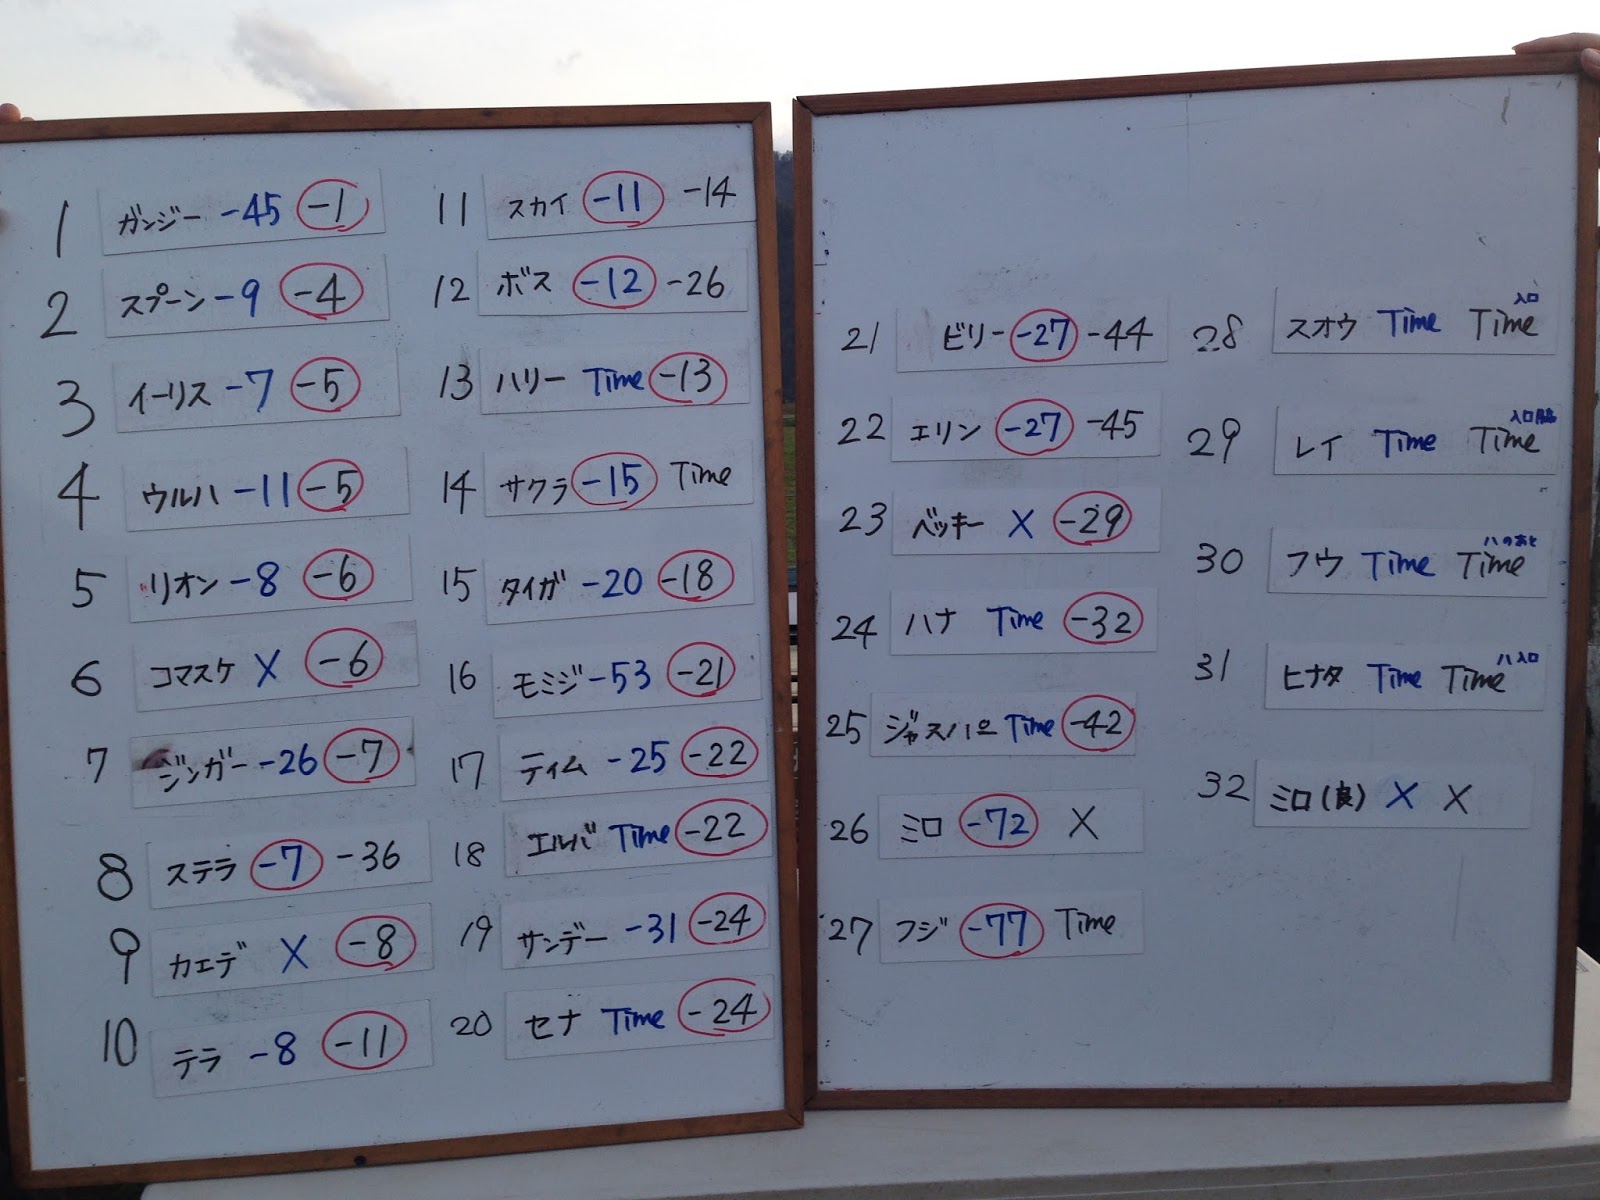 1 ガンジー -45 -1
2 スプーン -9 -4
3 イーリス -7 -5
4 ウルハ -11 -5
5 リオン -8 -6
6 コマスケ X -6
7 ジンガー -26 -7
8 ステラ -7 -36
9 カエデ X -8
10 テラ -8 -11
11 スカイ -11 -14
12 ボス -12 -26
13 ハリー Time -13
14 サクラ -15 Time
15 タイガ -20 -18
16 モミジ -53 -21
17 ティム -25 -22
18 エルバ Time -22
19 サンデー -31 -24
20 セナ Time -24
21 ビリー -27 -44
22 エリン -27 -45
23 ベッキー X -29
24 ハナ Time -32
25 ジャスパー Time -42
26 ミロ -72 X
27 フジ -77 Time
入口
28 スオウ Time Time
入口
29 レイ Time Time
ハのあと
30 フウ Time Time
ハ入口
31 ヒナタ Time Time
32 ミロ(良) X X